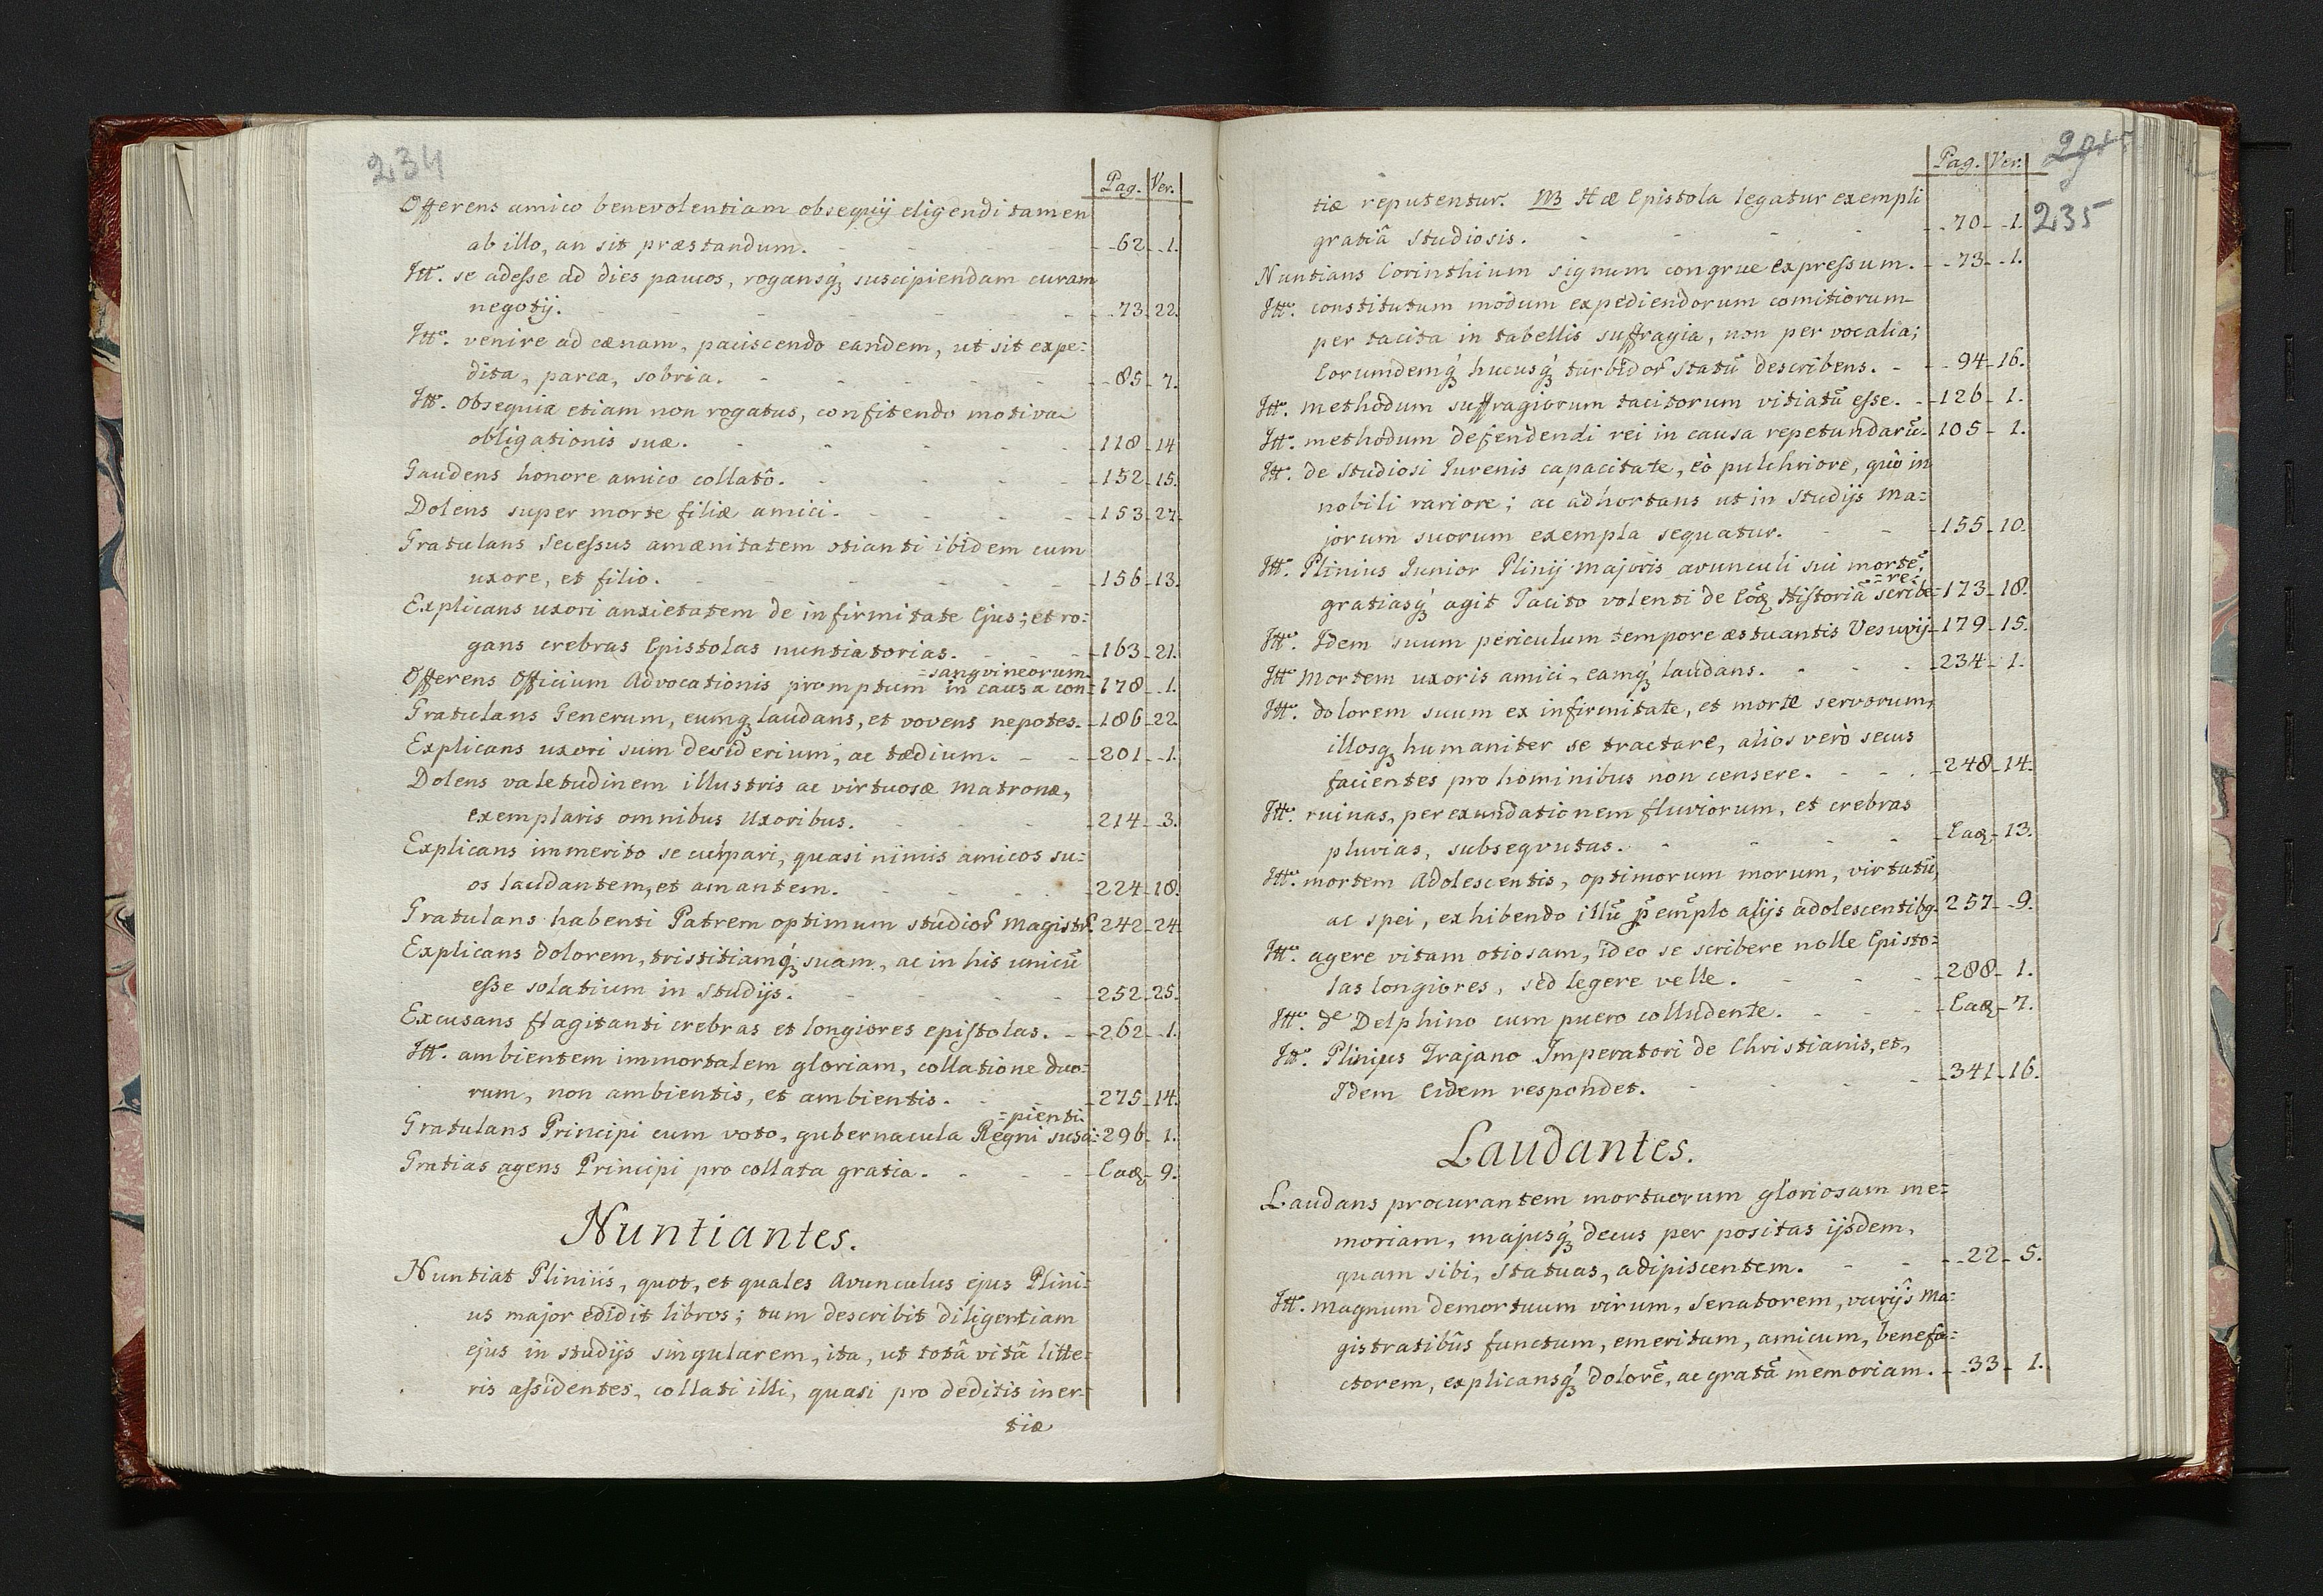 234
Pag. Ver.
Offerens amico benevolentiam obsequij eligendi tamen
ab illo, an sit præstandum. - 62 - 1.
Itt. se adesse ad dies paucos, rogansq́ꝫ suscipiendam curam
negotij. - 73 - 22.
Itt. venire ad cænam, paciscendo eandem, ut sit expe:
dita, parca, sobria. - 85 - 7.
Itt. Obsequia etiam non rogatus, confitendo motiva
obligationis suæ. - 118 - 14
Gaudens honore amico collatô. - 152 - 15.
Dolens super morte filiæ amici. - 153 - 27.
Gratulans Secessus amænitatem otianti ibidem cum
uxore, et filio. - 156 - 13.
Explicans uxori anxietatem de infirmitate Ejus; et ro:
gans crebras Epistolas nuntiatorias. - 163 - 21.
=sangvineorum.
Offerens Officium Advocationis promptum in causa con= 178 - 1.
Gratulans Generum, eumqꝫ laudans, et vovens nepotes. - 186 - 22
Explicans uxori sum desiderium, ac tædium. - 201 - 1.
Dolens valetudinem illustris ac virtuosæ Matronæ,
exemplaris omnibus Uxoribus. - 214 - 3.
Explicans immerito se culpari, quasi nimis amicos su=
os laudantem, et amantem. - 224 - 18.
Gratulans habenti Patrem optimum studior Magistr. 242 - 24
Explicans dolorem, tristitiamq́ꝫ suam, ac in his unicũ
esse solatium in studijs. - 252 - 25.
Excusans flagitanti crebras et longiores epistolas. - 262 - 1.
Itt. ambientem immortalem gloriam, collatione duo=
rum, non ambientis, et ambientis. - 275 - 14.
=pienti.
Gratulans Principi cum voto, gubernacula Regni susci= 296 - 1.
Gratias agens Principi pro collata gratia. - Eaꝫ - 9.
Nuntiantes.
Nuntiat Plinius, quot, et quales Avunculus ejus Plini=
us major edidit libros; tum describit diligentiam
ejus in studijs singularem, ita, ut totâ vitâ litte=
ris assidentes, collati illi, quasi pro deditis iner=
tiæ
Pag. Ver.
235
tiæ reputentur. NB Hæ Epistola legatur exempli
gratiâ studiosis. - 70 - 1.
Nuntians Corinthium signum congrue expressum. - 73 - 1.
Itt. constitutum modum expediendorum comitiorum
per tacita in tabellis suffragia, non per vocalia;
Eorumdemq́ꝫ hucusq́ꝫ turbidor statũ describens. - 94 - 16.
Itt. methodum suffragiorum tacitorum vitiatũ esse. - 126 - 1.
Itt. methodum defendendi rei in causa repetundarũ. 105 - 1.
Itt. de studiosi Iuvenis capacitate, eò pulchriore, quò in
nobili rariore; ac adhortans ut in studijs ma=
jorum suorum exempla sequatur. - 155 - 10.
Itt. Plinius Iunior Plinij Majoris avunculi sui mortẽ,
=re.
gratiasq́ꝫ agit Tacito volenti de Eoꝫ Historiã scribe= 173 - 18.
Itt. Idem suum periculum tempore æstuantis Vesuvij - 179 - 15.
Itt. Mortem uxoris amici, eamq́ꝫ laudans. - 234 - 1.
Itt. dolorem suum ex infirmitate, et morte servorum,
illosqꝫ humaniter se tractare, alios verò secus
facientes pro hominibus non censere. - 248 - 14.
Itt. ruinas, per exundationem fluviorum, et crebras
pluvias, subseqvutas. - Eaꝫ - 13.
Itt. mortem Adolescentis, optimorum morum, virtutũ,
ac spei, exhibendo illũ p emplo alijs adolescentibꝫ. 257 - 9.
Itt. agere vitam otiosam, ideo se scribere nolle Episto=
las longiores, sed legere velle. - 288 - 1.
Itt. de Delphino cum puero colludente. - Eaꝫ - 7.
Itt. Plinius Trajano Imperatori de Christianis, et,
Idem Eidem respondet. - 341 - 16.
Laudantes.
Laudans procurantem mortuorum gloriosam me=
moriam, majusq́ꝫ decus per positas ijsdem,
quam sibi, statuas, adipiscentem. - 22 - 5.
Itt. Magnum demortuum virum, Senatorem, varijs Ma=
gistratibûs functum, emeritum, amicum, benefa=
ctorem, explicansq́ꝫ dolorẽ, ac gratã memoriam. - 33 - 1.